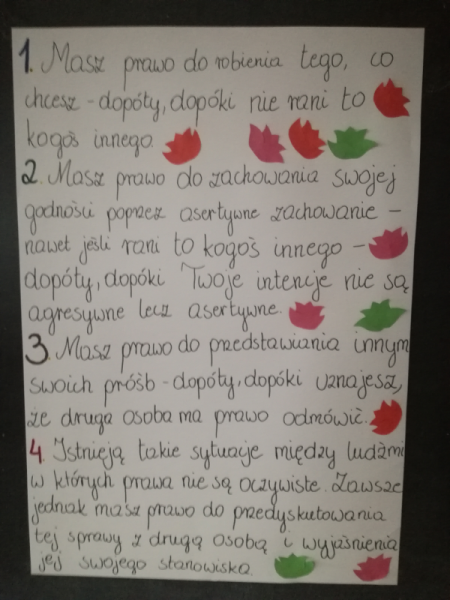 1. Masz prawo do robienia tego, co
chcesz - dopóty, dopóki nie rani to
kogoś innego.
2. Masz prawo do zachowania swojej
godności poprzez asertywne zachowanie -
nawet jeśli rani to kogoś innego -
dopóty, dopóki Twoje intencje nie są
agresywne lecz asertywne.
3. Masz prawo do przedstawiania innym
swoich próśb - dopóty, dopóki uznajesz,
że druga osoba ma prawo odmówić.
4. Istnieją takie sytuacje między ludźmi
w których prawa nie są oczywiste. Zawsze
jednak masz prawo do przedyskutowania
tej sprawy z drugą osobą i wyjaśnienia
jej swojego stanowiska.